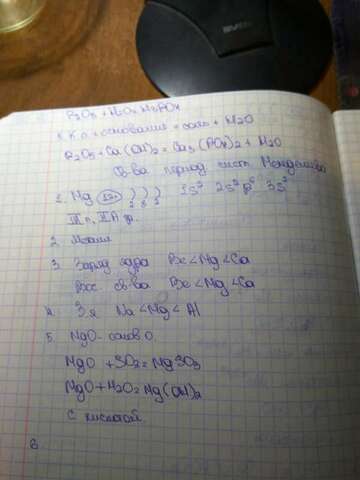 P2O5 + H2O = H3PO4
К.о + основание = соль + H2O
P2O5 + Ca(OH)2 = Ca3(PO4)2 + H2O
Св-ва период сист. Менделеева
1. Mg +12 ) ) ) 2 8 2 1s² 2s² p⁶ 3s²
III п, II A гр.
2. Металл
3. Заряд ядра Be < Mg < Ca
Вос. св-ва Be < Mg < Ca
4. З.я Na < Mg < Al
5. MgO - основ О.
MgO + SO2 = MgSO3
MgO + H2O = Mg(OH)2
с кислотой.
6